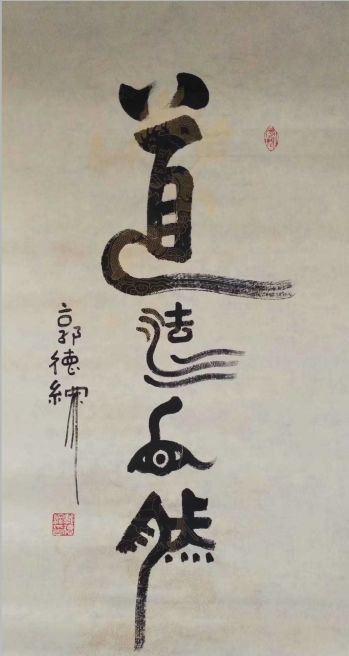 道法自然
郭德綱